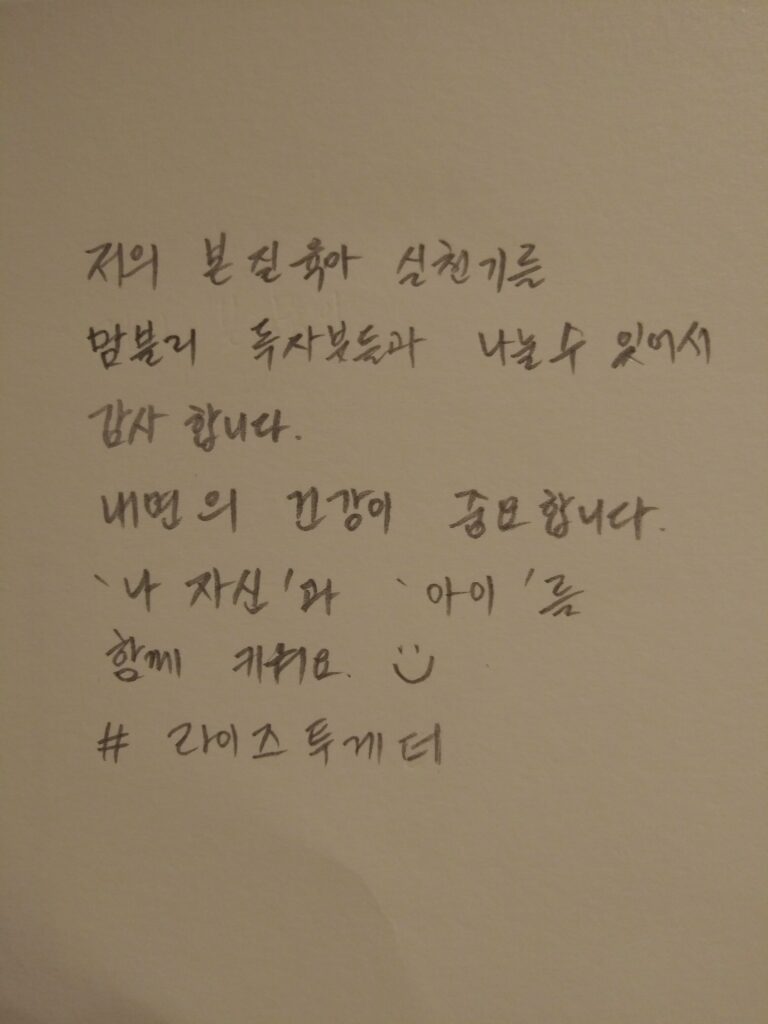 저의 본질육아 실천기를
맘블리 독자분들과 나눌 수 있어서
감사 합니다.
내면의 건강이 중요합니다.
'나 자신'과 '아이'를
함께 키워요. :)
# 라이즈투게더